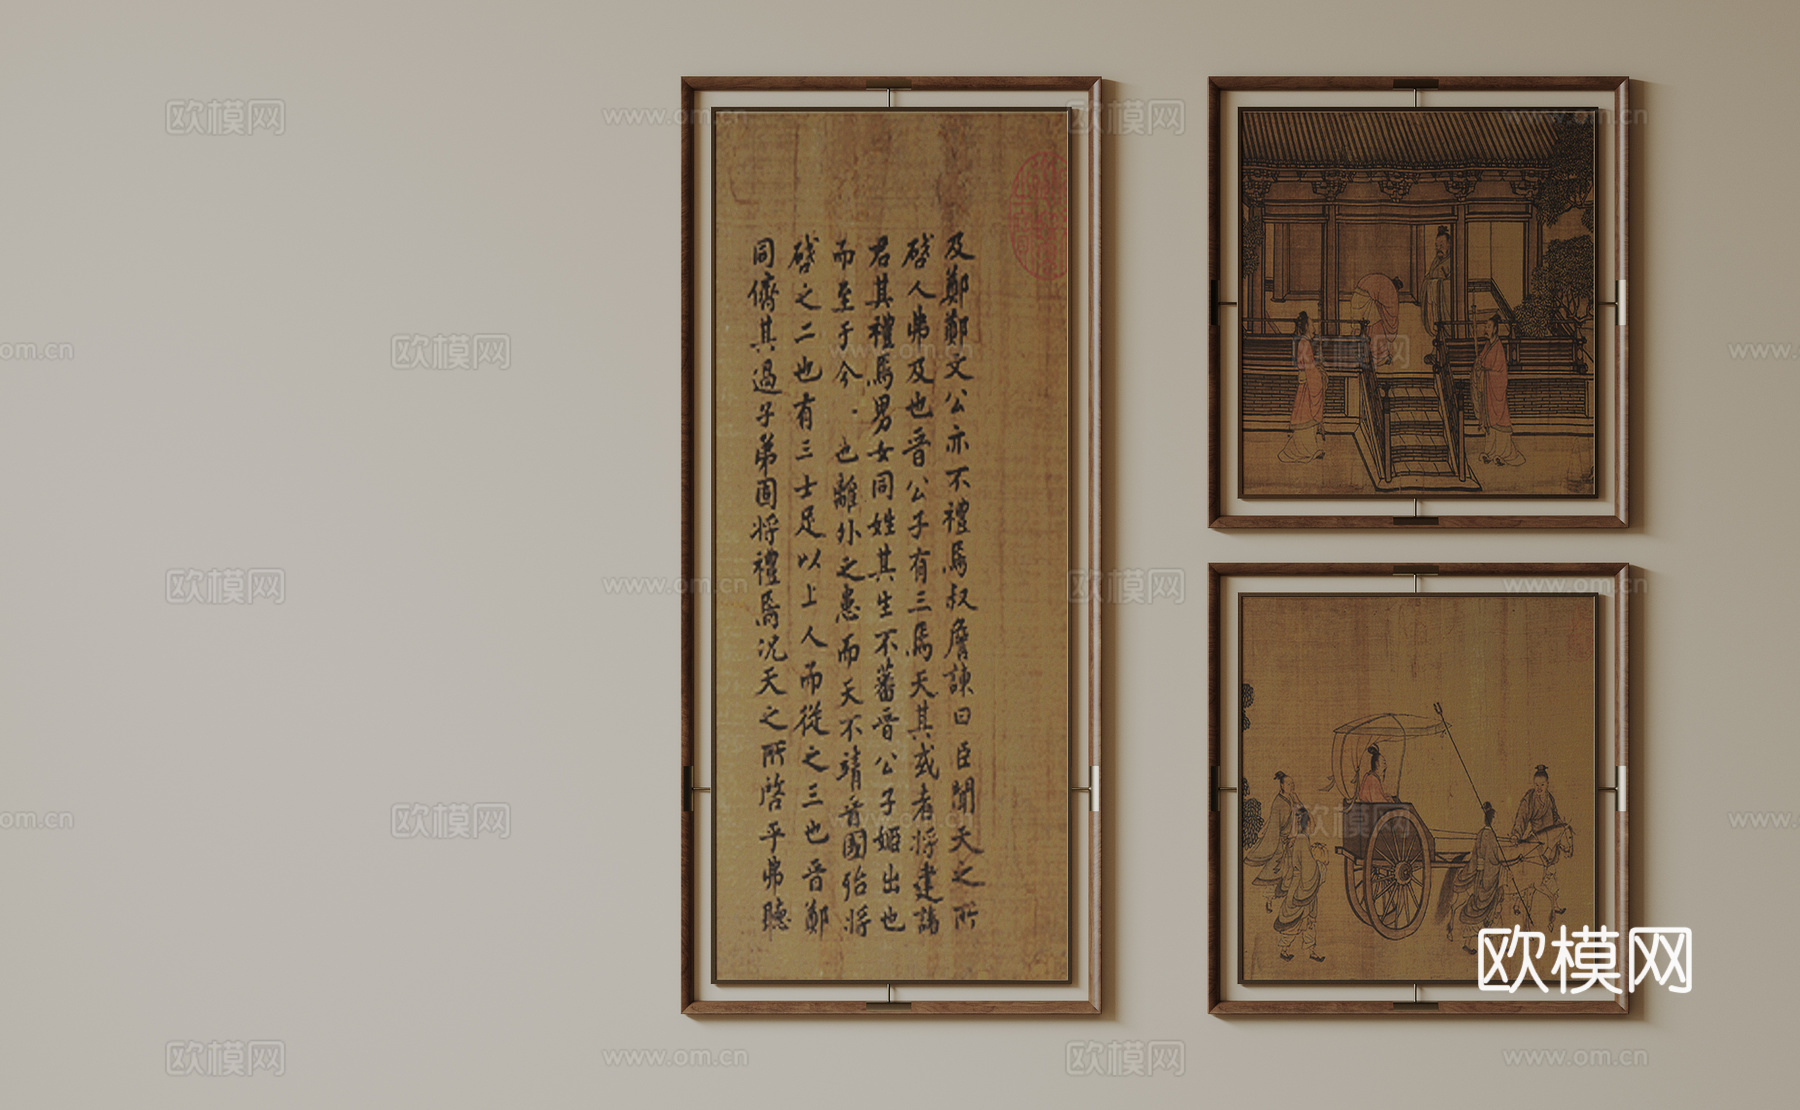 及鄭鄭文公亦不禮焉叔詹諫曰臣聞天之所
啓人弗及也晉公子有三焉天其或者將建諸
君其禮焉男女同姓其生不蕃晉公子姬出也
而至于今也離外之患而天不靖晉國殆將
啓之二也有三士足以上人而從之三也晉鄭
同儕其過子弟固將禮焉況天之所啓乎弗聽
欧模网
www.om.cn